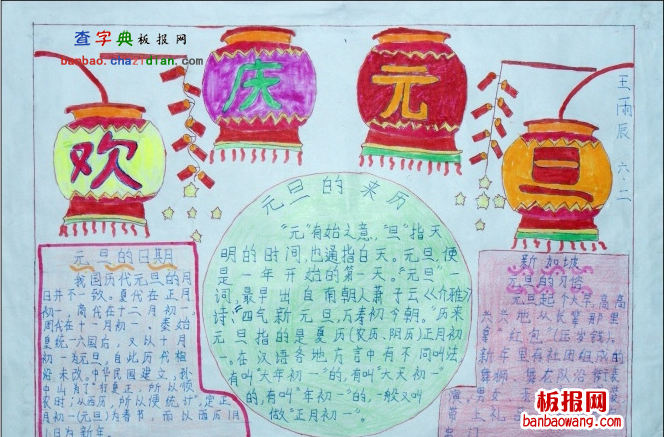 查字典板报网
banbao.chazidian.com
欢庆元旦
王雨辰 六.二
元旦的来历
"元"有始之意,"旦"指天
明的时间,也通指白天。元旦,便
是一年开始的第一天。"元旦"一
词,最早出自南朝人萧子云《介雅》
诗:"四气新元旦,万寿初今朝。"历来
元旦指的是夏历(农历、阴历)正月初
一。在汉语各地方言中有不同叫法,
有叫"大年初一"的,有叫"大天初一"
的,有叫"年初一"的,一般又叫
做"正月初一"。
元旦的日期
我国历代元旦的月
日并不一致。夏代在正月
初一,商代在十二月初一,
周代在十一月初一,秦始
皇统一六国后,又以十月
初一为元旦,自此历代相
沿未改。中华民国建立,孙
中山为了"行夏正,所以顺
农时;从西历,所以便统计",定正
月初一(元旦)为春节,而以西历1月
1日为新年。
新加坡
元旦的习俗
元旦起个大早,高高
兴兴地从长辈那里
拿"红包"(压岁钱)。
新年里有社团组成的
舞狮、舞龙队沿街
男女
带上礼
板报网
banbaowang.com